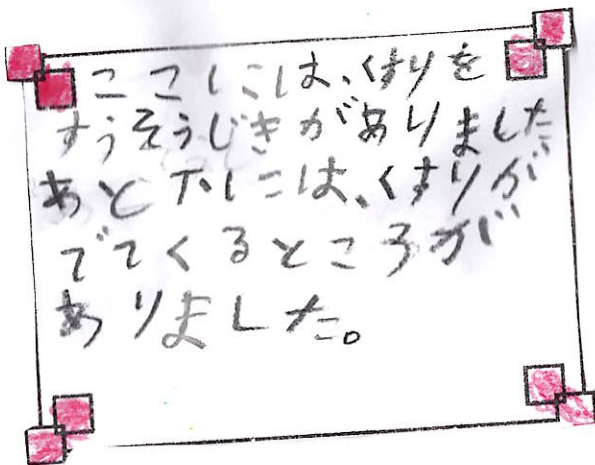 ここには、くすりを
すうそうじきがありました
あと下には、くすりが
でてくるところが
ありました。